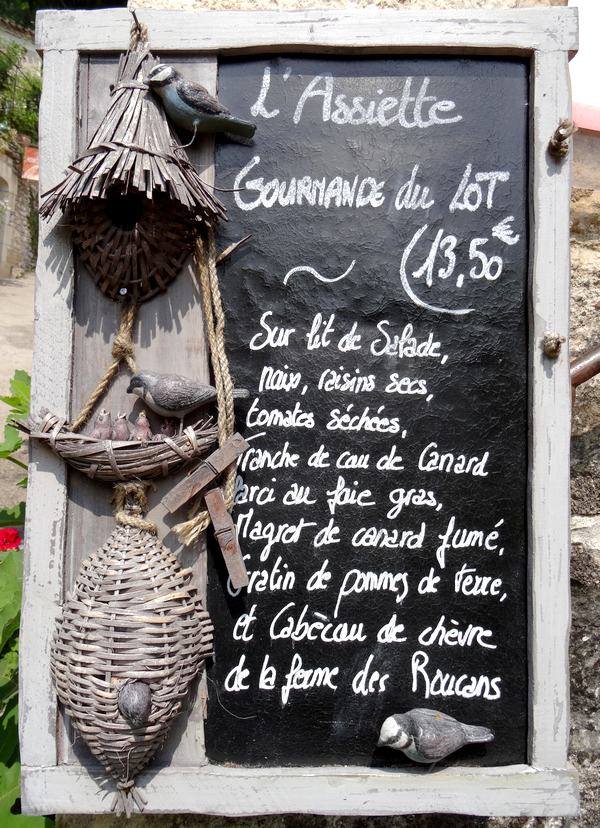 L'Assiette
GOURMANDE du LOT
(13,50€
Sur lit de Salade,
noix, raisins secs,
tomates séchées,
Tranche de cou de Canard
Farci au foie gras,
Magret de canard fumé,
Gratin de pommes de terre,
et Cabècou de chèvre
de la ferme des Roucans